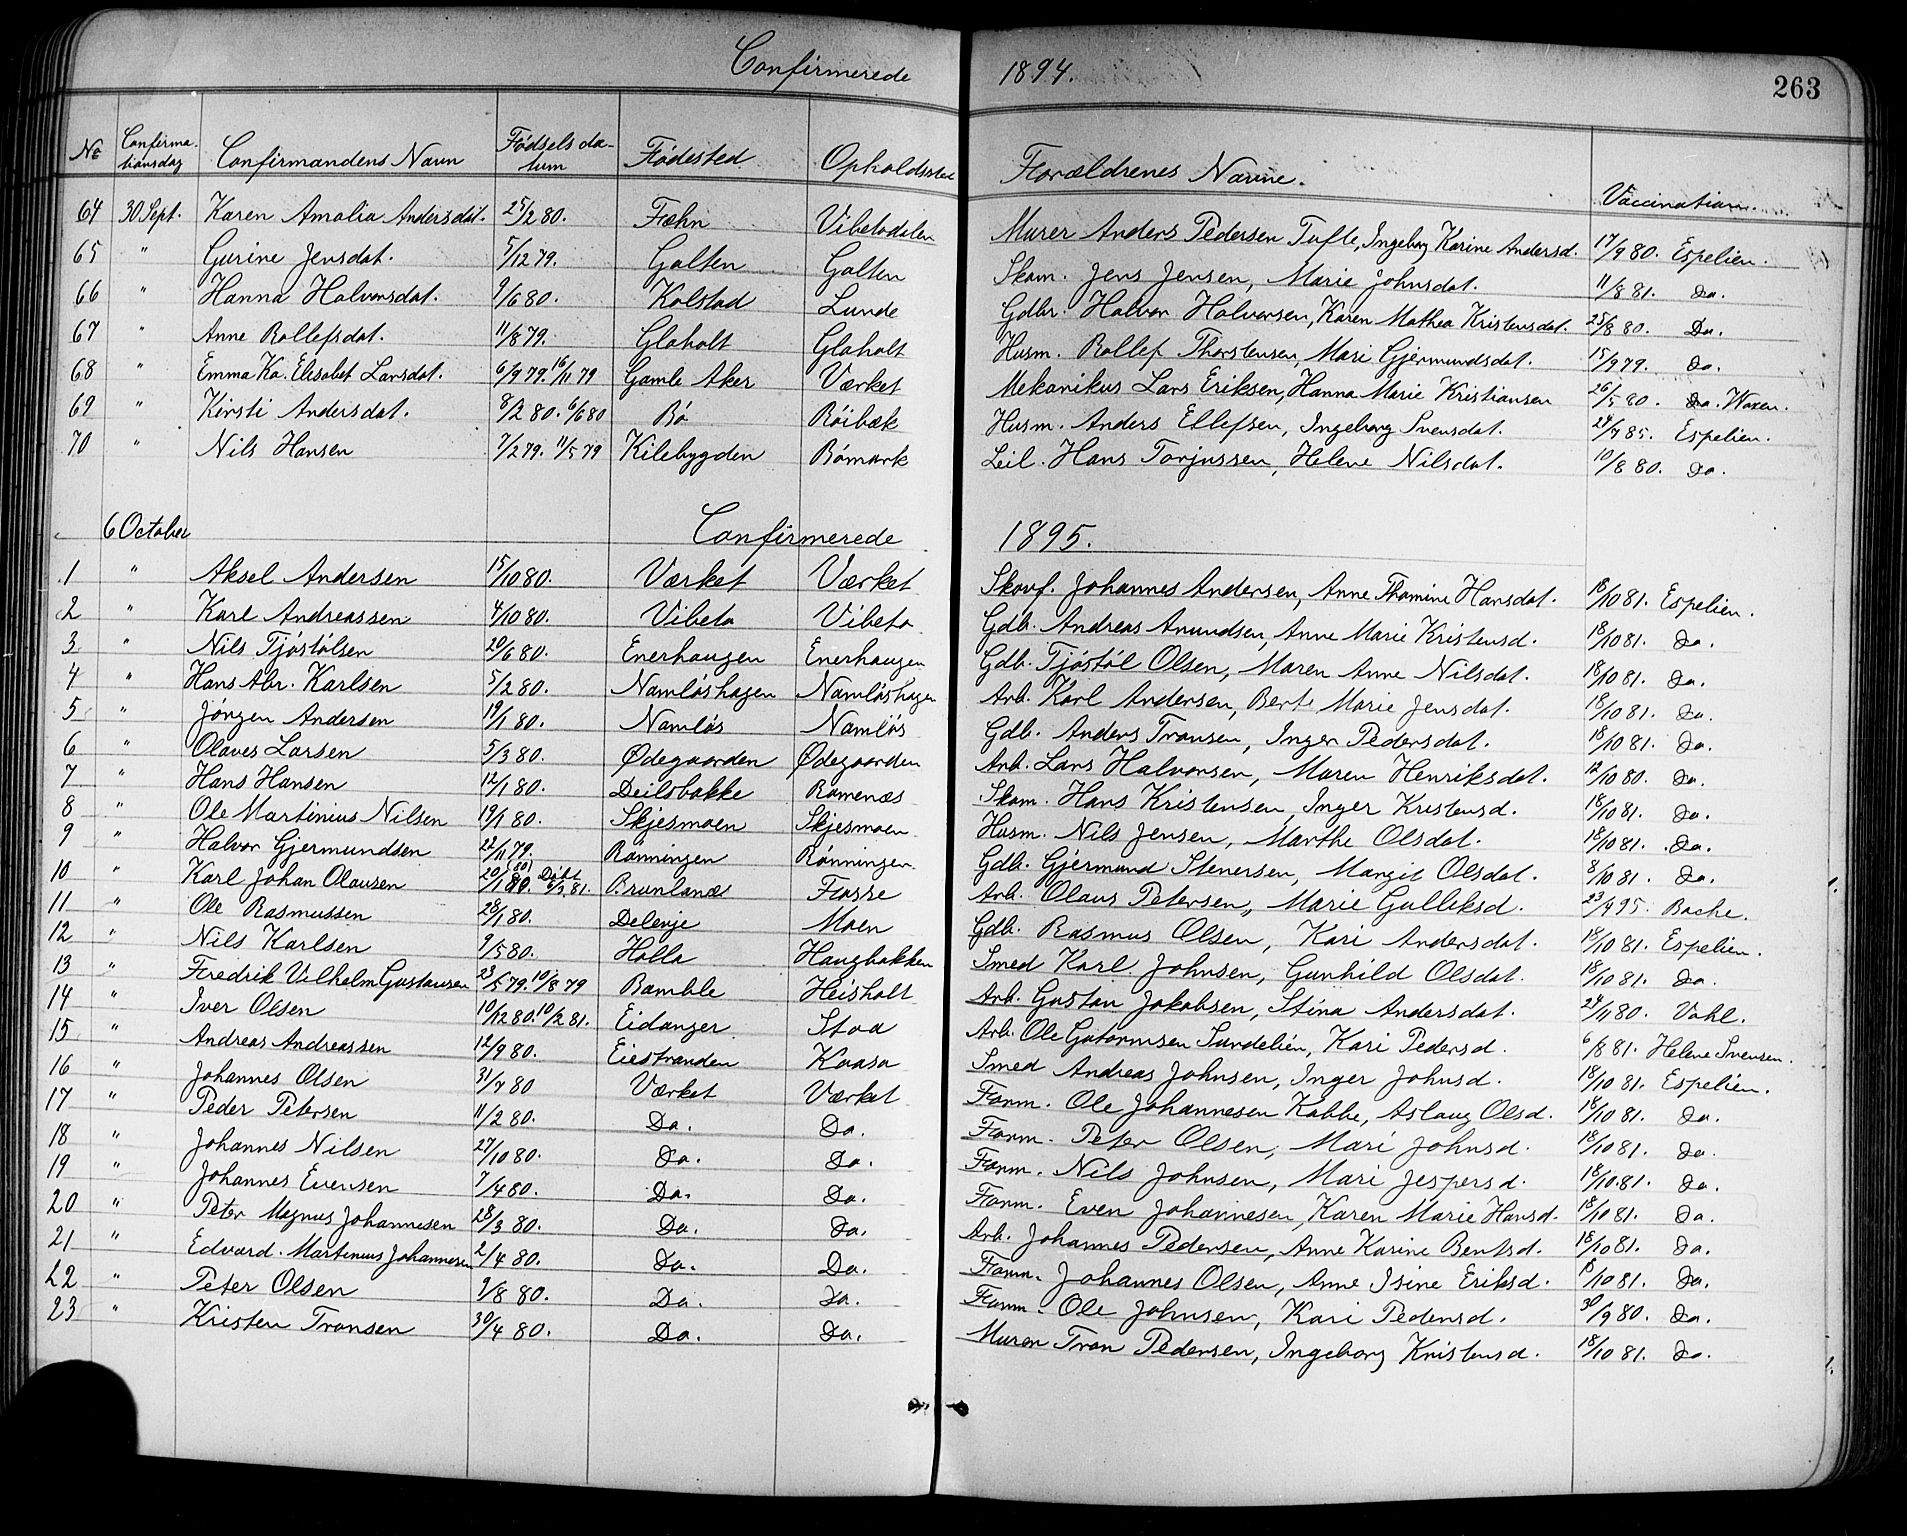 Confirmerede 1894. 263
No Confirma- tionsdag Confirmandens Navn Fødselsda- tum Fødested Opholdssted Forældrenes Navne. Vaccination
64 30 Sept. Karen Amalia Andersdat. 25/2 80. Fæhn Vibetodalen Murer Anders Pedersen Tufte, Ingeborg Karine Andersd. 17/9 80. Espelien.
65 " Gurine Jensdat. 5/12 79. Galten Galten Skom. Jens Jensen, Marie Johnsdat. 11/8 81. Do.
66 " Hanna Halvorsdat. 9/6 80. Kolstad Lunde Gdbr. Halvor Halvorsen, Karen Mathea Kristensdat. 25/8 80. Do.
67 " Anne Rollefsdat. 11/8 79. Gloholt Gloholt Husm. Rollef Thorstensen, Mari Gjermundsdat. 15/9 79. Do.
68 " Emma Ka. Elisabet Larsdat. 6/9 79. 16/11 79 Gamle Aker Værket Mekanikus Lars Eriksen, Hanna Marie Kristiansen 26/5 80. Do. Waxen.
69 " Kirsti Andersdat. 8/2 80. 6/6 80 Bø Röibæk Husm. Anders Ellefsen, Ingeborg Svensdat. 24/7 85. Espelien.
70 " Nils Hansen 7/2 79. 11/5 79 Kilebygden Rømark Leil. Hans Torjussen, Helene Nilsdat. 10/8 80. Do.
6 October Confirmerede 1895.
1 " Aksel Andersen 15/10 80. Værket Værket Skovf. Johannes Andersen, Anne Thomine Hansdat. 18/10 81. Espelien.
2 " Karl Andreassen 4/10 80. Vibeto Vibeto Gdb. Andreas Amundsen, Anne Marie Kristensd. 18/10 81. Do.
3 " Nils Tjöstölsen 20/6 80. Enerhaugen Enerhaugen Gdb. Tjöstöl Olsen, Maren Anne Nilsdat. 18/10 81. Do.
4 " Hans Abr. Karlsen 5/2 80. Namløshagen Namløshagen Arb. Karl Andersen, Berte Marie Jensdat. 18/10 81. Do.
5 " Jörgen Andersen 19/1 80. Namløs Namløs Gdb. Anders Tronsen, Inger Pedersdat. 18/10 81. Do.
6 " Olaves Larsen 5/3 80. Ødegaarden Ødegaarden Arb. Lars Halvorsen, Maren Henriksdat. 12/10 80. Do.
7 " Hans Hansen 12/1 80. Deilsbakke Romenæs Skom. Hans Kristensen, Inger Kristensd. 18/10 81. Do.
8 " Ole Martinius Nilsen 19/1 80. Skjesmoen Skjesmoen Husm. Nils Jensen, Marthe Olsdat. 18/10 81. Do.
9 " Halvor Gjermundsen 22/11 79. Rønningen Rønningen Gdb. Gjermund Stenersen, Margit Olsdat. 8/10 81. Do.
10 " Karl Johan Olausen 20/1 (80) Döbt 6/3 81. Brunlanæs Fosse Arb. Olaus Petersen, Marie Gulleksd. 23/9 95. Bache.
11 " Ole Rasmussen 28/1 80. Delevje Moen Gdb. Rasmus Olsen, Kari Andersdat. 18/10 81. Espelien.
12 " Nils Karlsen 9/5 80. Holla Haugbakken Smed Karl Johnsen, Gunhild Olsdat. 18/10 81. Do.
13 " Fredrik Vilhelm Gustausen 23/5 79. 10/8 79 Bamble Heisholt Arb. Gustav Jakobsen, Stina Andersdat. 24/11 80. Vahl.
14 " Iver Olsen 10/12 80. 10/2 81. Eidanger Stoa Arb. Ole Gutormsen Surdelien, Kari Pedersd. 6/8 81. Helene Svensen.
15 " Andreas Andreassen 12/9 80. Eiestranden Kaasa Smed Andreas Johnsen, Inger Johnsd. 18/10 81. Espelien.
16 " Johannes Olsen 31/7 80 Værket Værket Form. Ole Johannesen Kabbe, Aslaug Olsd. 18/10 81. Do.
17 " Peder Petersen 11/2 80. Do. Do. Form. Peter Olsen, Mari Johnsd. 18/10 81. Do.
18 " Johannes Nilsen 27/10 80. Do. Do. Form. Nils Johnsen, Mari Jespersd. 18/10 81. Do.
19 " Johannes Evensen 7/4 80. Do. Do. Form. Even Johannesen, Karen Marie Hansd. 18/10 81. Do.
20 " Peter Magnus Johannesen 28/3 80. Do. Do. Arb. Johannes Pedersen, Anne Karine Bentsd. 18/10 81. Do.
21 " Edvard Martinius Johannesen 2/4 80. Do. Do. Form. Johannes Olsen, Anne Isine Eriksd. 18/10 81. Do.
22 " Peter Olsen 9/8 80. Do. Do. Form. Ole Johnsen, Kari Pedersd. 30/9 80. Do.
23 " Kristen Tronsen 30/4 80. Do. Do. Murer Tron Pedersen, Ingeborg Kristensd. 18/10 81. Do.